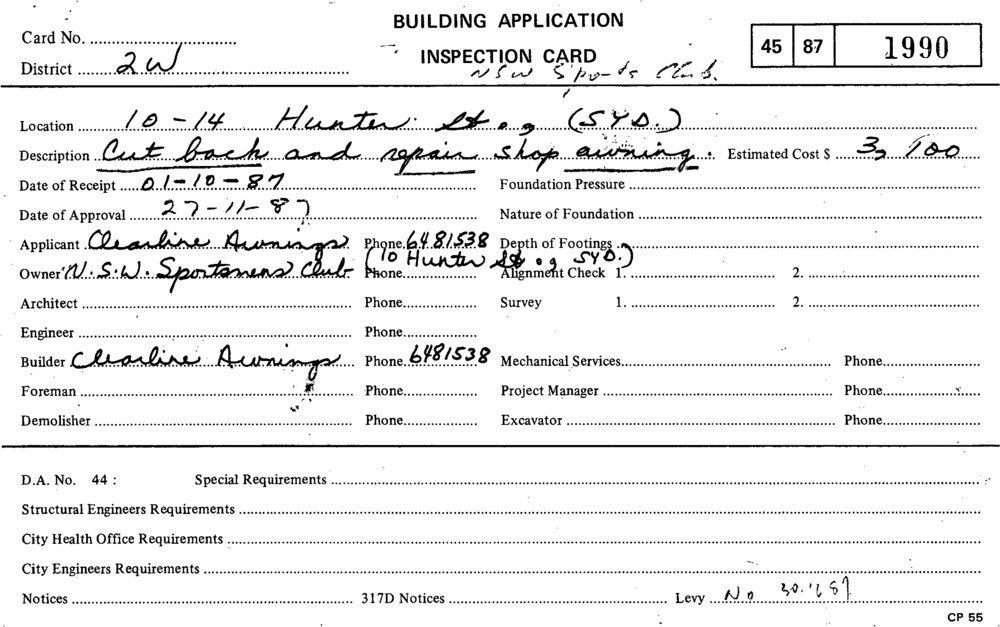 BUILDING APPLICATION
Card No.
45 87 1990
INSPECTION CARD
District 2W
NSW Sports Club.
Location 10-14 Hunter St., (SYD.)
Description Cut back and repair shop awning. Estimated Cost $ 3,100
Date of Receipt 01-10-87 Foundation Pressure
Date of Approval 27-11-87 Nature of Foundation
Applicant Clearline Awnings Phone 6481538 Depth of Footings
Owner N.S.W. Sportsmens Club (10 Hunter St., SYD.) Phone Alignment Check 1. 2.
Architect Phone Survey 1. 2.
Engineer Phone
Builder Clearline Awnings Phone 6481538 Mechanical Services Phone
Foreman Phone Project Manager Phone
Demolisher Phone Excavator Phone
D.A. No. 44 : Special Requirements
Structural Engineers Requirements
City Health Office Requirements
City Engineers Requirements
Notices 317D Notices Levy No
CP 55